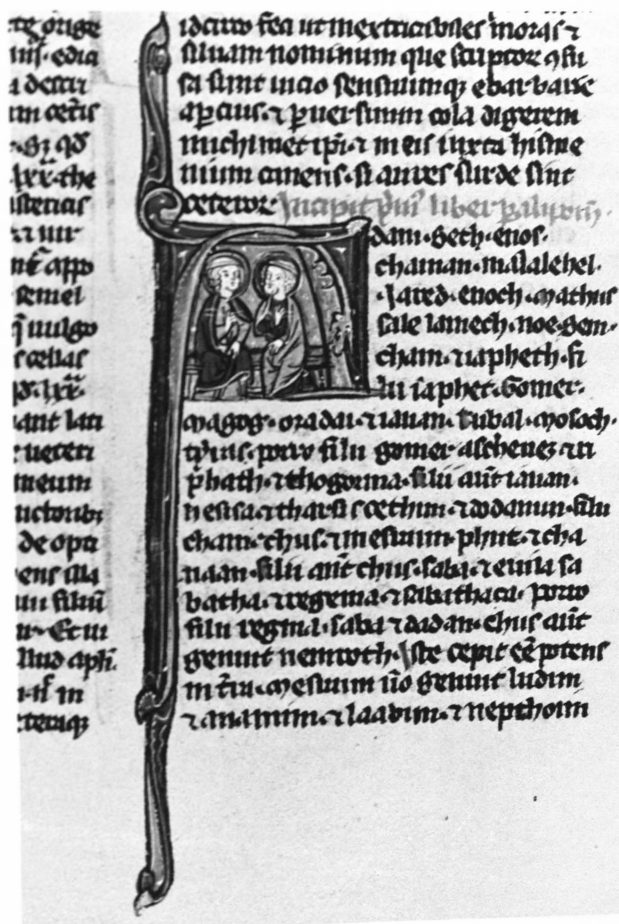 te orige
nis edia
a descri
um cetis
Sz qd
lxx the
astericis
z uir
nt appo
semel
q uulgo
s celias
qd lxx
ant lati
ueteri
meum
uctoribz
de opti
ens illa
un filiu
n Et iu
llud aph.
nt in
cteriqz
idcirco fca ut inextricabiles moras ⁊
siluam nominum que scriptor ꝯfu
sa sunt uicio sensuumqz ebarbarie
apcius ⁊ p uersuum cola digerem
michimet ipi ⁊ meis iuxta hisme
nium canens si aures surde sint
ceteror Incipit pm' liber palipom.
Adam seth enos
chainan malalehel
Jared enoch mathus
sale lamech noe sem
cham ⁊ iapheth fi
lii iaphet gomer
magog ⁊ madai ⁊ iauan tubal mosoch
tyras porro filii gomer aschenez ⁊ ri
phath ⁊ thogorma filii aut iauan
helisa ⁊ tharsis cethim ⁊ dodanim filii
cham chus ⁊ mesraim phut ⁊ cha
naan filii aut chus saba ⁊ euila sa
batha ⁊ regema ⁊ sabathaca porro
filii regma saba ⁊ dadan chus aut
genuit nemroth Iste cepit ee potens
in tra mesraim uo genuit ludim
⁊ anamim ⁊ laabim ⁊ nepthoim